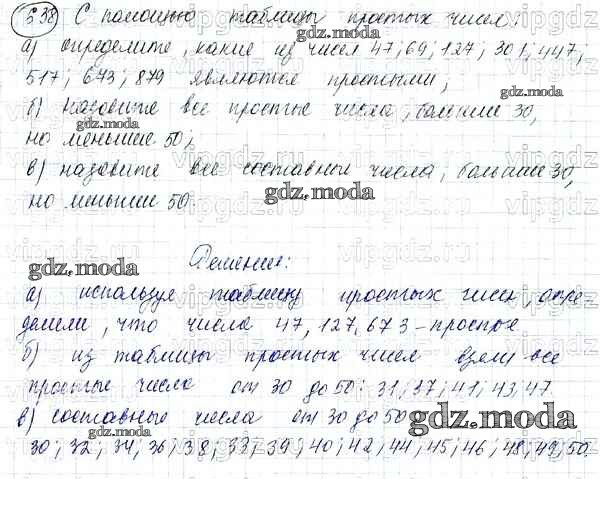 538 С помощью таблицы простых чисел:
а) определите, какие из чисел 47; 69; 127; 301; 447;
517; 673; 879 являются простыми;
б) назовите все простые числа, большие 30,
но меньшие 50;
в) назовите все составные числа, большие 30,
но меньшие 50.
Решение:
а) используя таблицу простых чисел, опре
делели, что числа 47, 127, 673 - простые
б) из таблицы простых чисел взяли все
простые числа от 30 до 50: 31; 37; 41; 43; 47
в) составные числа от 30 до 50
30; 32; 34; 36; 38; 33; 39; 40; 42; 44; 45; 46; 48; 49; 50.
gdz.moda
gdz.moda
gdz.moda
gdz.moda
gdz.moda
gdz.moda
gdz.moda
gdz.moda
vipgdz.ru